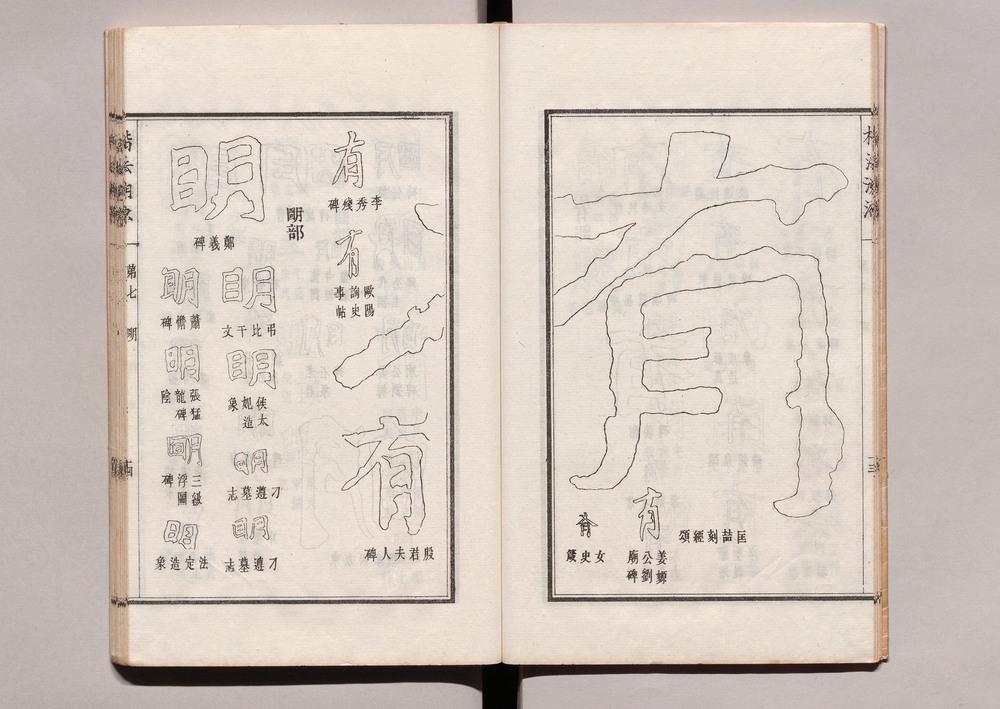 有
匡喆刻經頌
有
姜嫄公劉廟碑
有
女史箴
有
李秀殘碑
有
歐陽詢史事帖
有
殷君夫人碑
朙部
明
鄭羲碑
明
弔比干文
明
侯太妃造象
明
刁遵墓志
明
刁遵墓志
明
蕭憺碑
明
張猛龍碑陰
明
三級浮圖碑
明
法定造象
第七 明